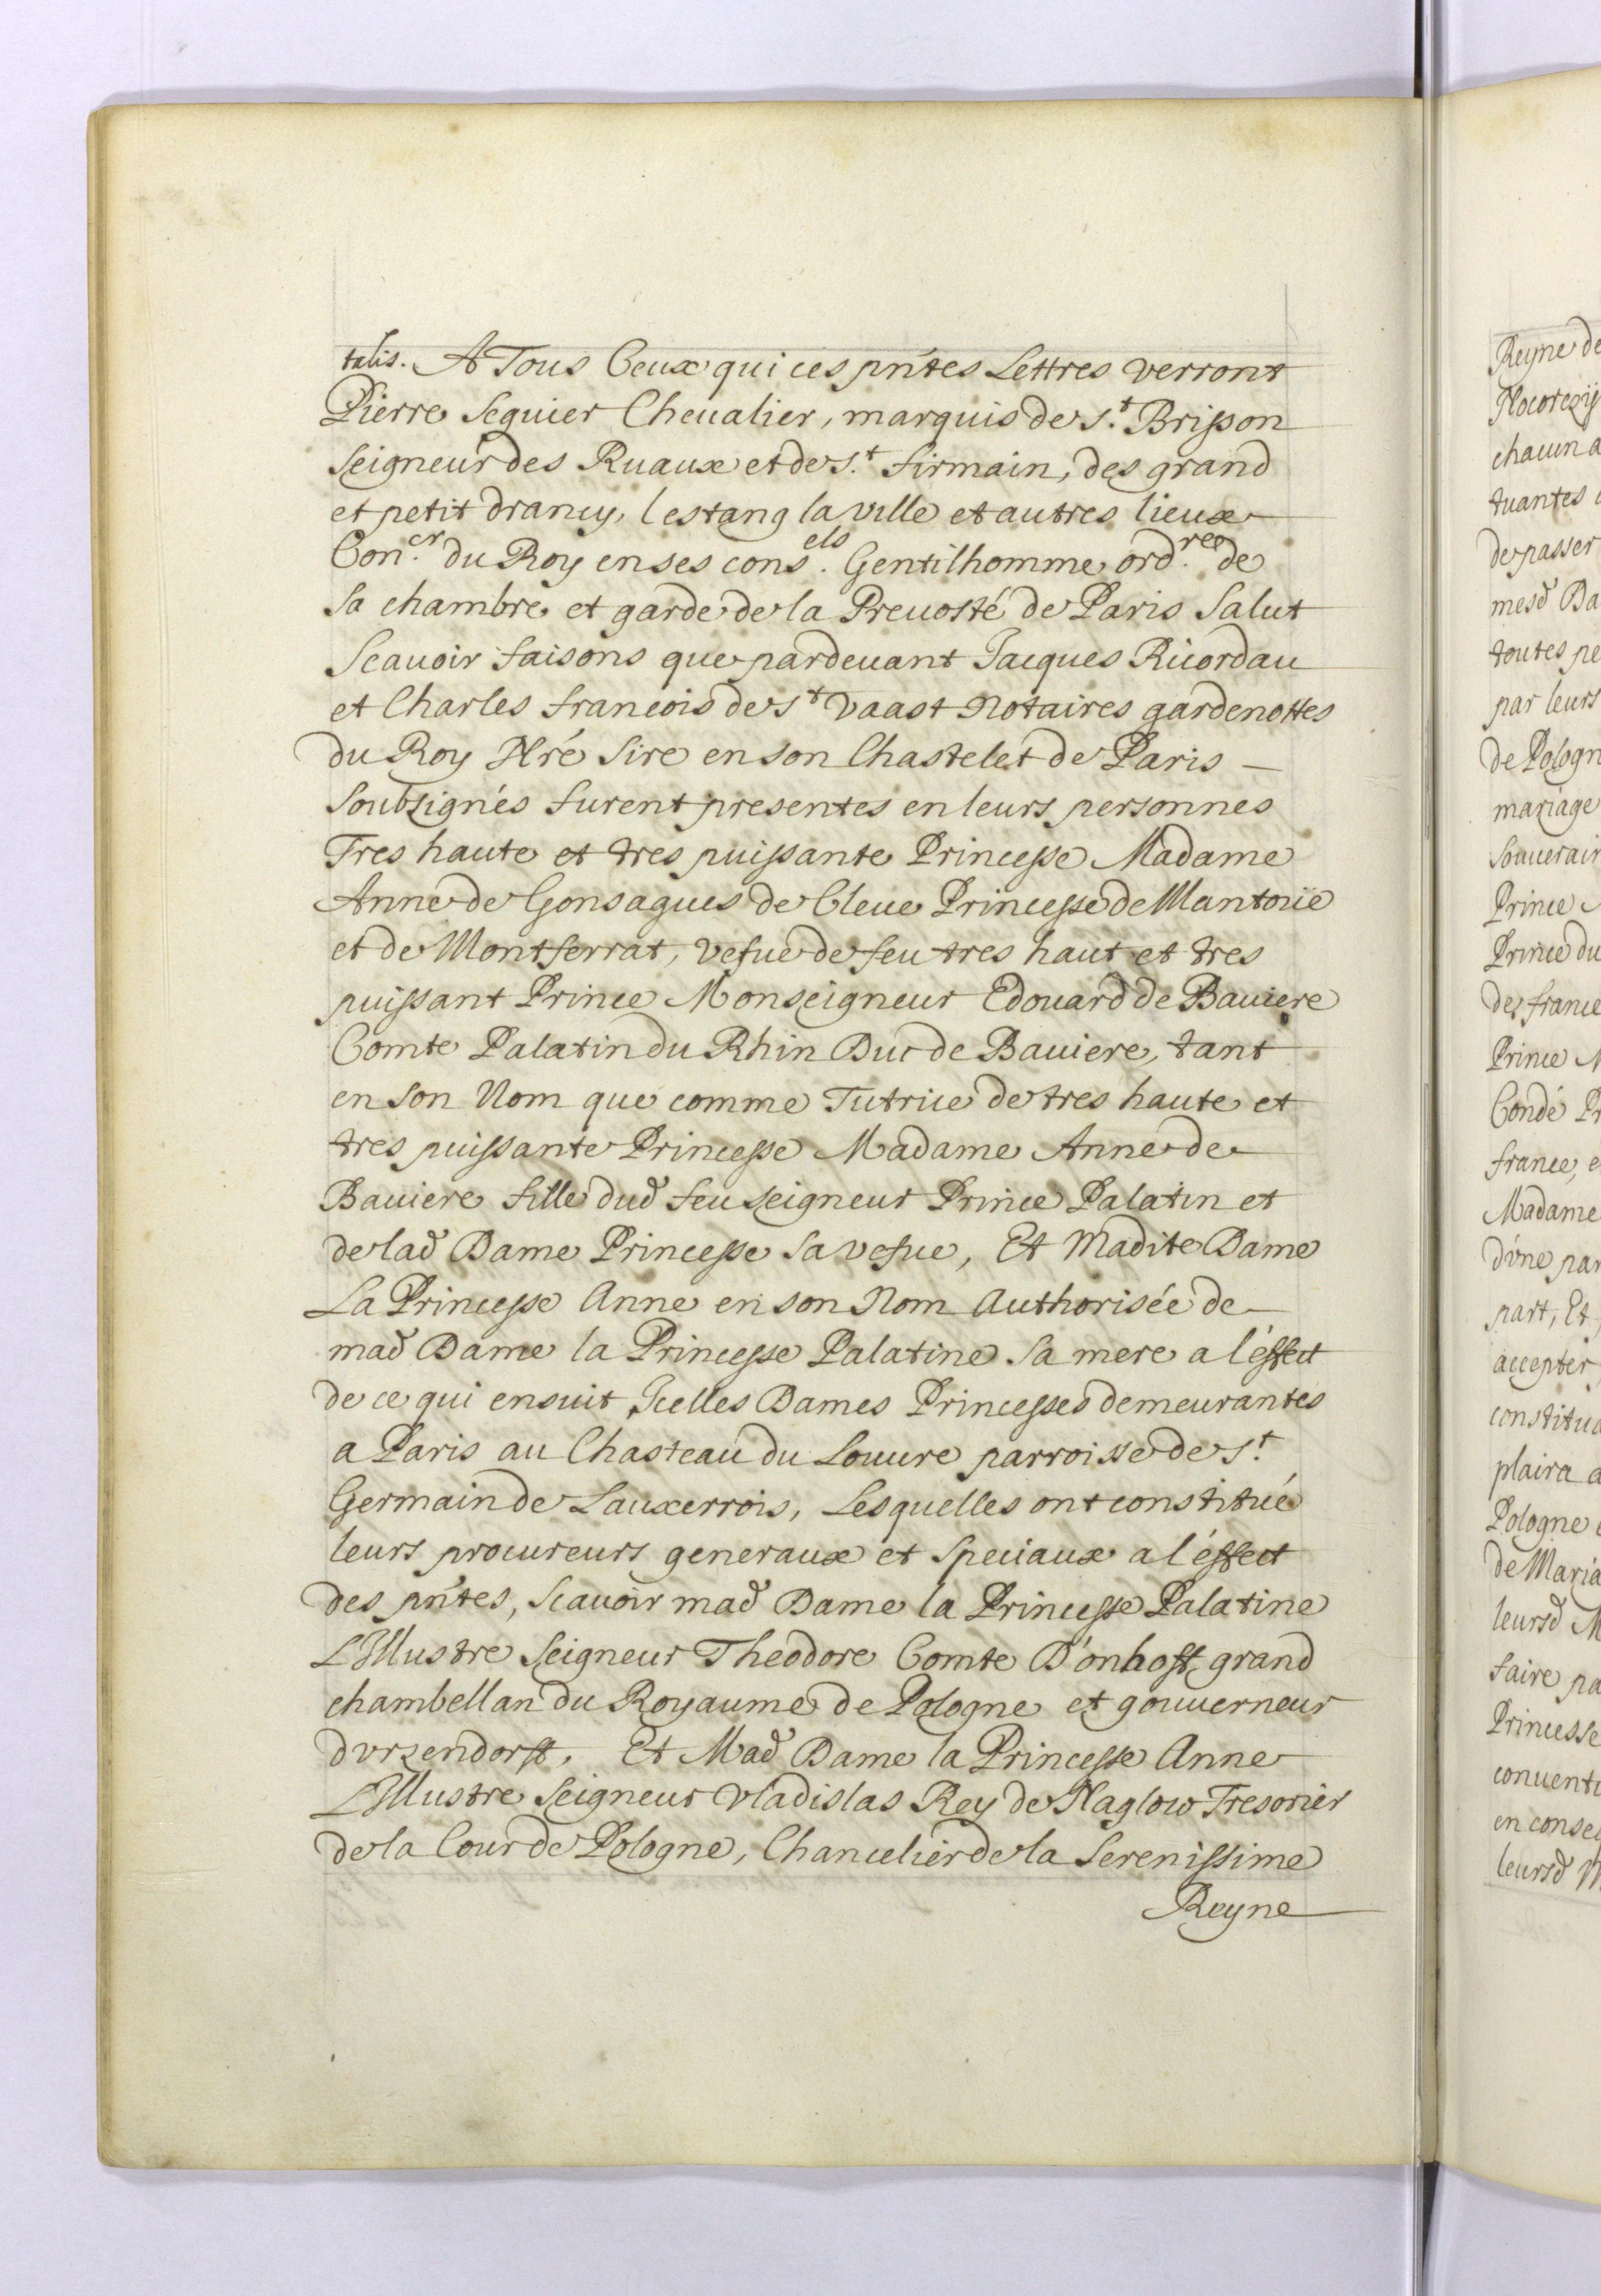 talis. A Tous Ceux qui ces pñtes Lettres verront
Pierre Seguier Cheualier, marquis de S.t Brisson
Seigneur des Ruaux et de S.t firmain, des grand
et petit drancy, lestang la ville et autres lieux
Con.er du Roy en ses cons.els Gentilhomme ord.re de
Sa chambre et garde de la Preuosté de Paris Salut
Scauoir faisons que pardeuant Jacques Ricordau
et Charles francois de St Vaast Notaires gardenottes
du Roy Nré Sire en son Chastelet de Paris —
Soubsignés furent presentes en leurs personnes
Tres haute et tres puissante Princesse Madame
Anne de Gonsagues de Cleue Princesse de Mantoüe
et de Montferrat, vefue de feu tres haut et tres
puissant Prince Monseigneur Edouard de Bauiere
Comte Palatin du Rhin Duc de Bauiere, tant
en son Nom que comme Tutrice de tres haute et
tres puissante Princesse Madame Anne de
Bauiere fille dud feu seigneur Prince Palatin et
de lad Dame Princesse sa vefue, Et Madite Dame
La Princesse Anne en son Nom Authorisée de
mad Dame la Princesse Palatine Sa mere a l'éffect
de ce qui ensuit, Icelles Dames Princesses demeurantes
a Paris au Chasteau du Louure parroisse de S.t
Germain de Lauxerrois, Lesquelles ont constitué
leurs procureurs generaux et speciaux a l'éffect
des pñtes, Scauoir mad Dame la Princesse Palatine
L'Illustre Seigneur Theodore Comte D'onhoff, grand
chambellan du Royaume de Pologne et gouuerneur
dvrzendorff, Et Mad Dame la Princesse Anne
L'Illustre Seigneur Vladislas Rey de Naglow Tresorier
de la Cour de Pologne, Chancelier de la Serenissime
Reyne
Reyne de
chacun a
tuantes
de passer
mesd Da
toutes pe
par leurs
de Pologn
mariage
Souuerain
Prince
Prince du
des france
Prince M
Condé Pr
france, e
Madame
d'vne par
part, Et
accepter
constitua
plaira a
Pologne
de Maria
leursd M
faire pa
Princesse
conuenti
en conseq
leursd M